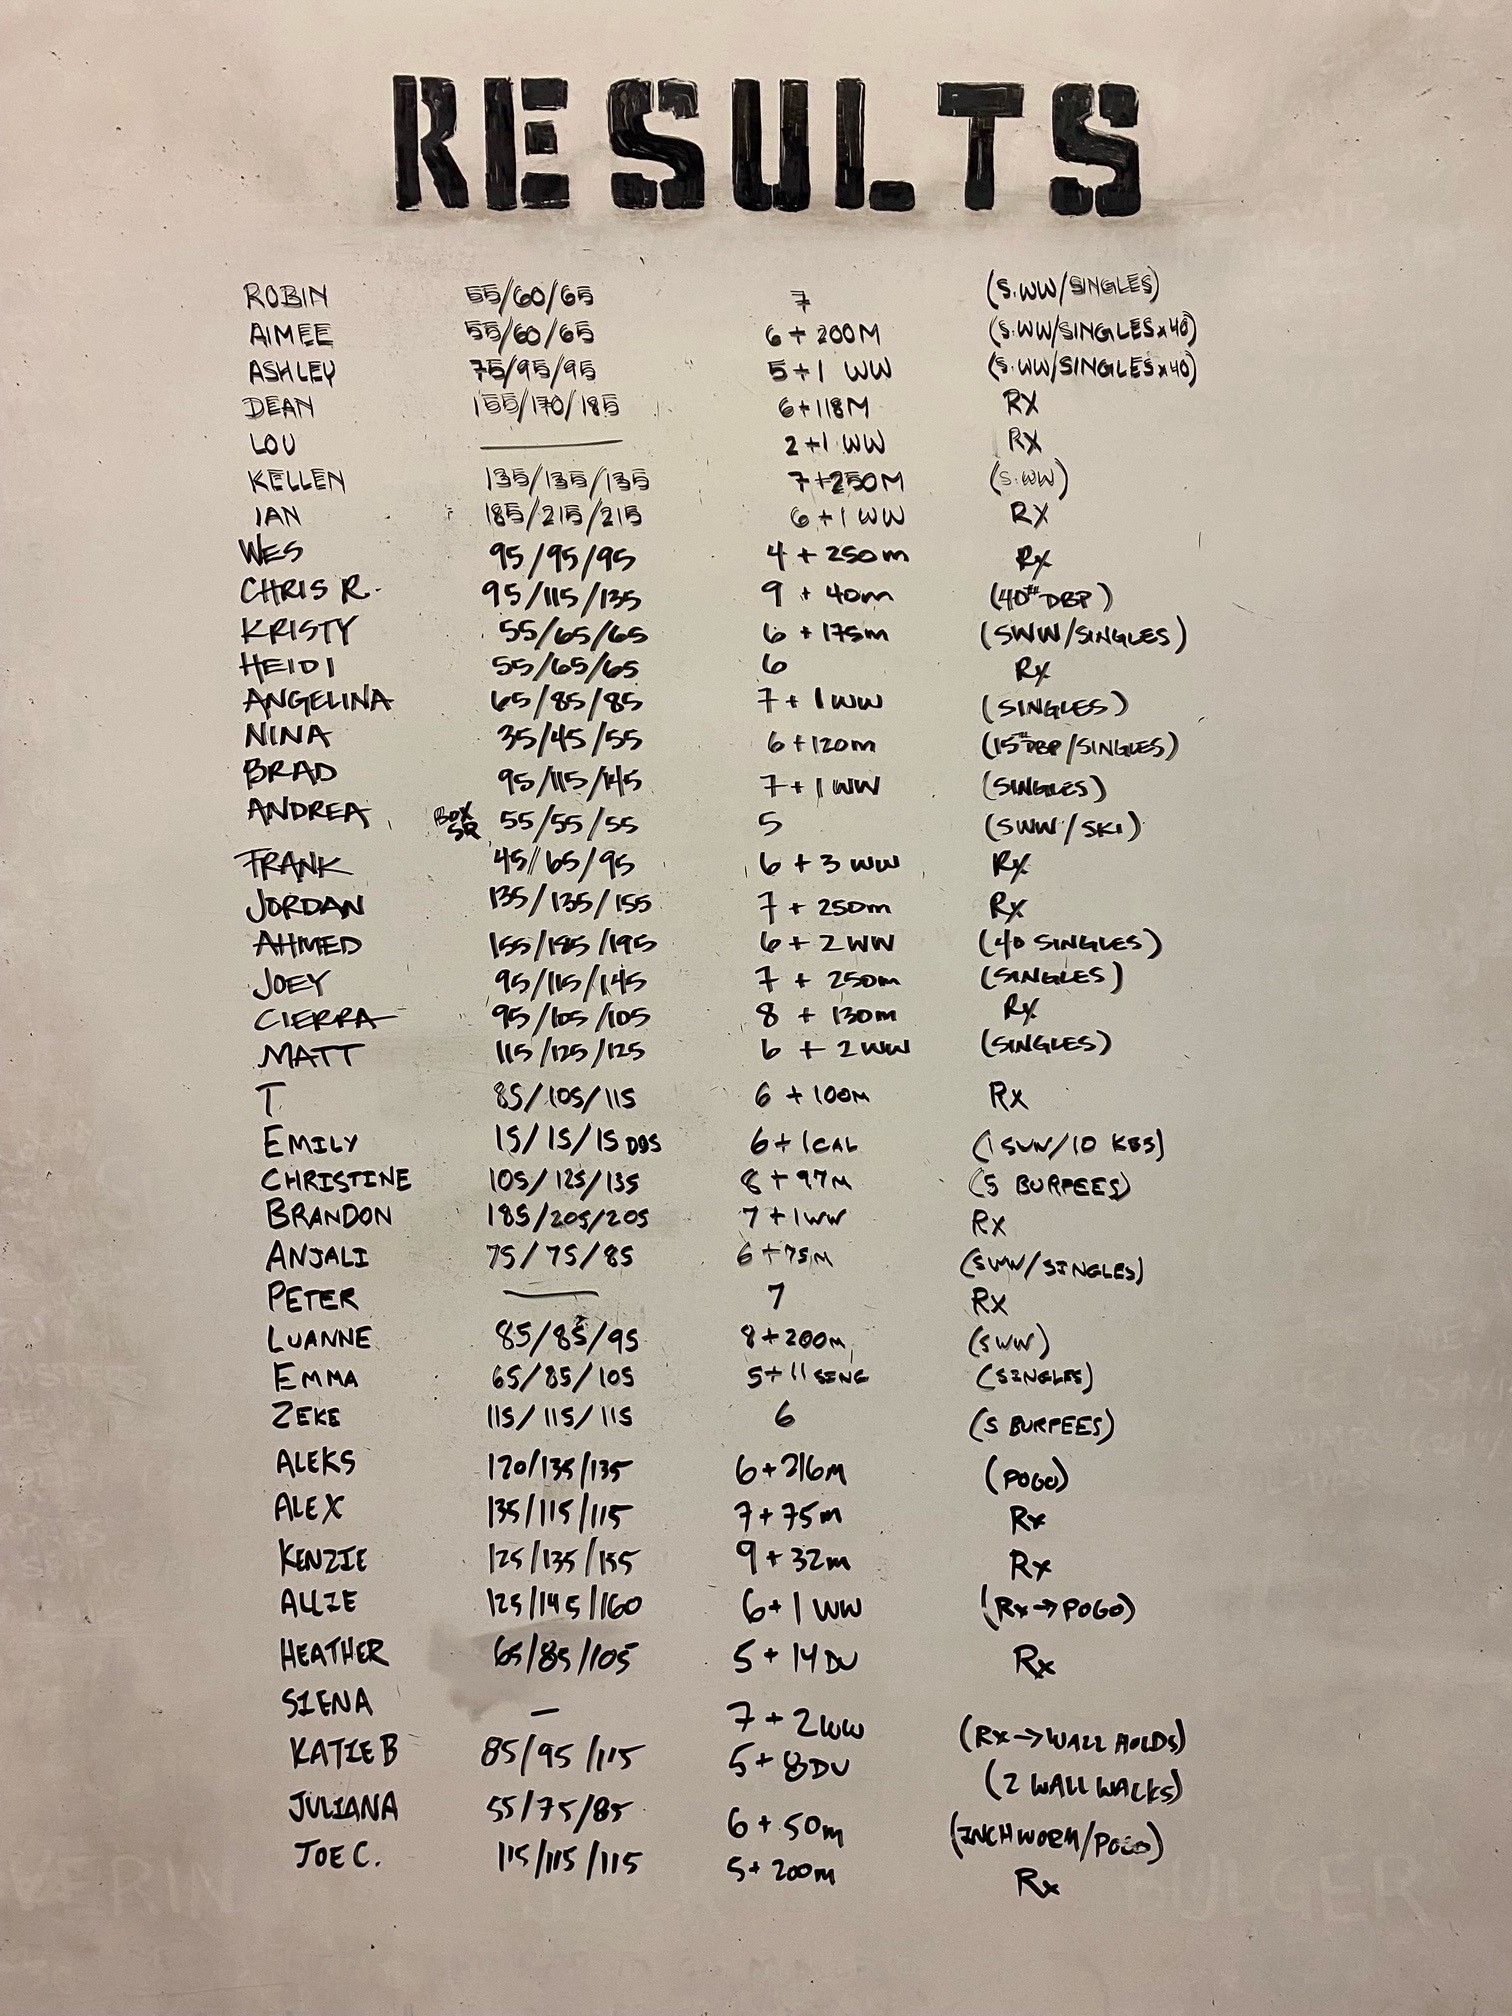 RESULTS
ROBIN 55/60/65 7 (S.WW/SINGLES)
AIMEE 55/60/65 6 + 200M (S.WW/SINGLESx40)
ASHLEY 75/95/95 5+1 WW (S.WW/SINGLESx40)
DEAN 155/170/185 6+118M RX
LOU — 2+1 WW RX
KELLEN 135/135/135 7+250M (S.WW)
IAN 185/215/215 6+1 WW RX
WES 95/95/95 4 + 250m Rx
CHRIS R. 95/115/135 9 + 40m (40# DBP)
KRISTY 55/65/65 6 + 175m (SWW/SINGLES)
HEIDI 55/65/65 6 Rx
ANGELINA 65/85/85 7 + 1 WW (SINGLES)
NINA 35/45/55 6 +120m (15# DBP/SINGLES)
BRAD 95/115/145 7+ 1 WW (SINGLES)
ANDREA BOX SQ 55/55/55 5 (SWW/SKI)
FRANK 45/65/95 6 + 3 WW Rx
JORDAN 135/135/155 7 + 250m Rx
AHMED 155/185/195 6 + 2 WW (40 SINGLES)
JOEY 95/115/145 7 + 250m (SINGLES)
CIERRA 95/105/105 8 + 130m Rx
MATT 115/125/125 6 + 2 WW (SINGLES)
T 85/105/115 6 + 100M Rx
EMILY 15/15/15 DBS 6+1CAL (1 SWW/10 KBS)
CHRISTINE 105/125/135 8 + 97M (5 BURPEES)
BRANDON 185/205/205 7 +1WW Rx
ANJALI 75/75/85 6 +75M (SWW/SINGLES)
PETER — 7 Rx
LUANNE 85/85/95 8+200m (SWW)
EMMA 65/85/105 5+11 SING (SINGLES)
ZEKE 115/115/115 6 (5 BURPEES)
ALEKS 120/135/135 6+216M (POGO)
ALEX 135/115/115 7+75m Rx
KENZIE 125/135/155 9 + 32m Rx
ALLIE 125/145/160 6+1 WW (Rx→POGO)
HEATHER 65/85/105 5 + 14 DU Rx
SIENA — 7 + 2WW (Rx→WALL HOLDS)
KATIE B 85/95/115 5+ 8DU (2 WALL WALKS)
JULIANA 55/75/85 6 + 50m (INCHWORM/POGO)
JOE C. 115/115/115 5+ 200m Rx
BULGER